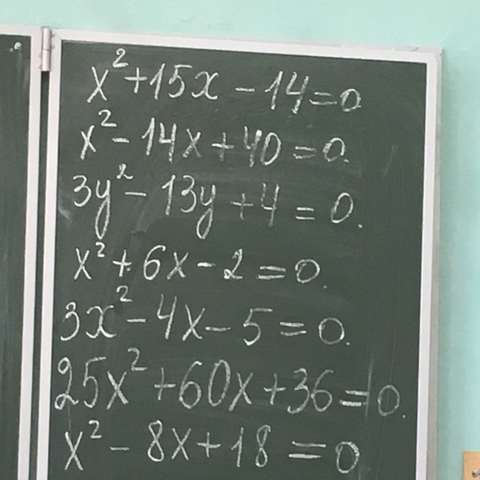 x² + 15x - 14 = 0
x² - 14x + 40 = 0.
3y² - 13y + 4 = 0.
x² + 6x - 2 = 0.
3x² - 4x - 5 = 0.
25x² + 60x + 36 = 0.
x² - 8x + 18 = 0